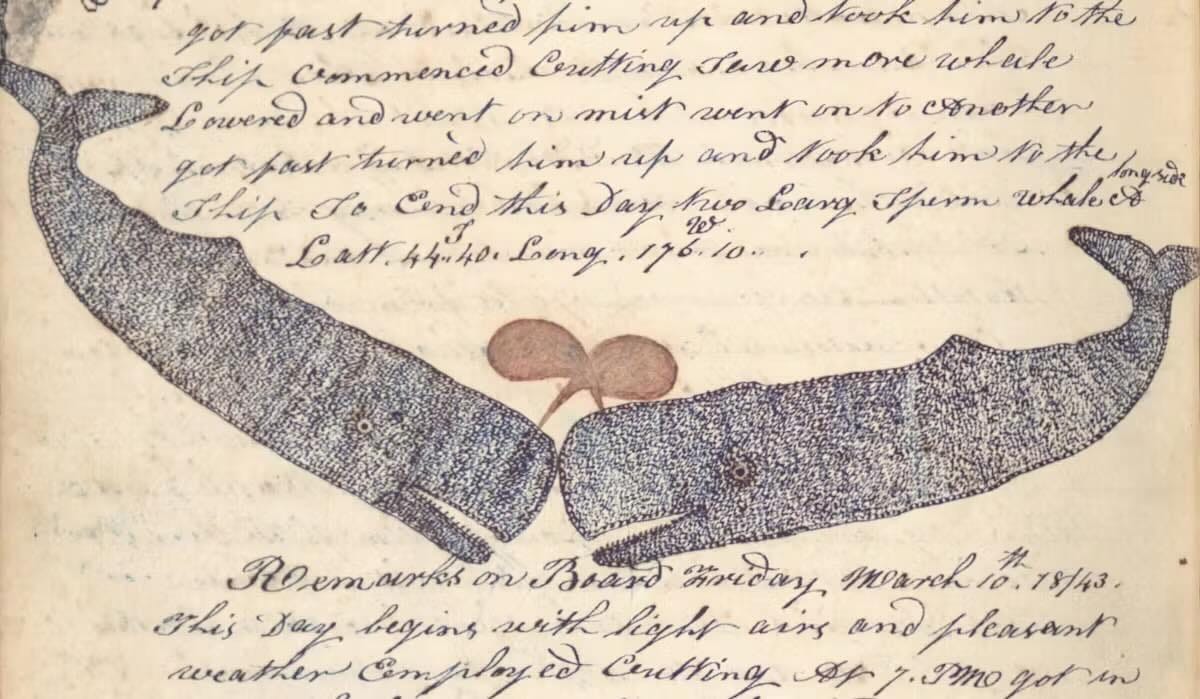 got fast turned him up and took him to the
Ship Commenced Cutting Saw more whale
Lowered and went on mist went on to Another
got fast turned him up and took him to the
Ship So Cend this Day two Larg Sperm whale longside
Latt. 44..40. S Long. 176.10. W
Remarks on Board Friday March 10th. 1843.
This Day begins with light airs and pleasant
weather Employed Cutting At 7. PM got in